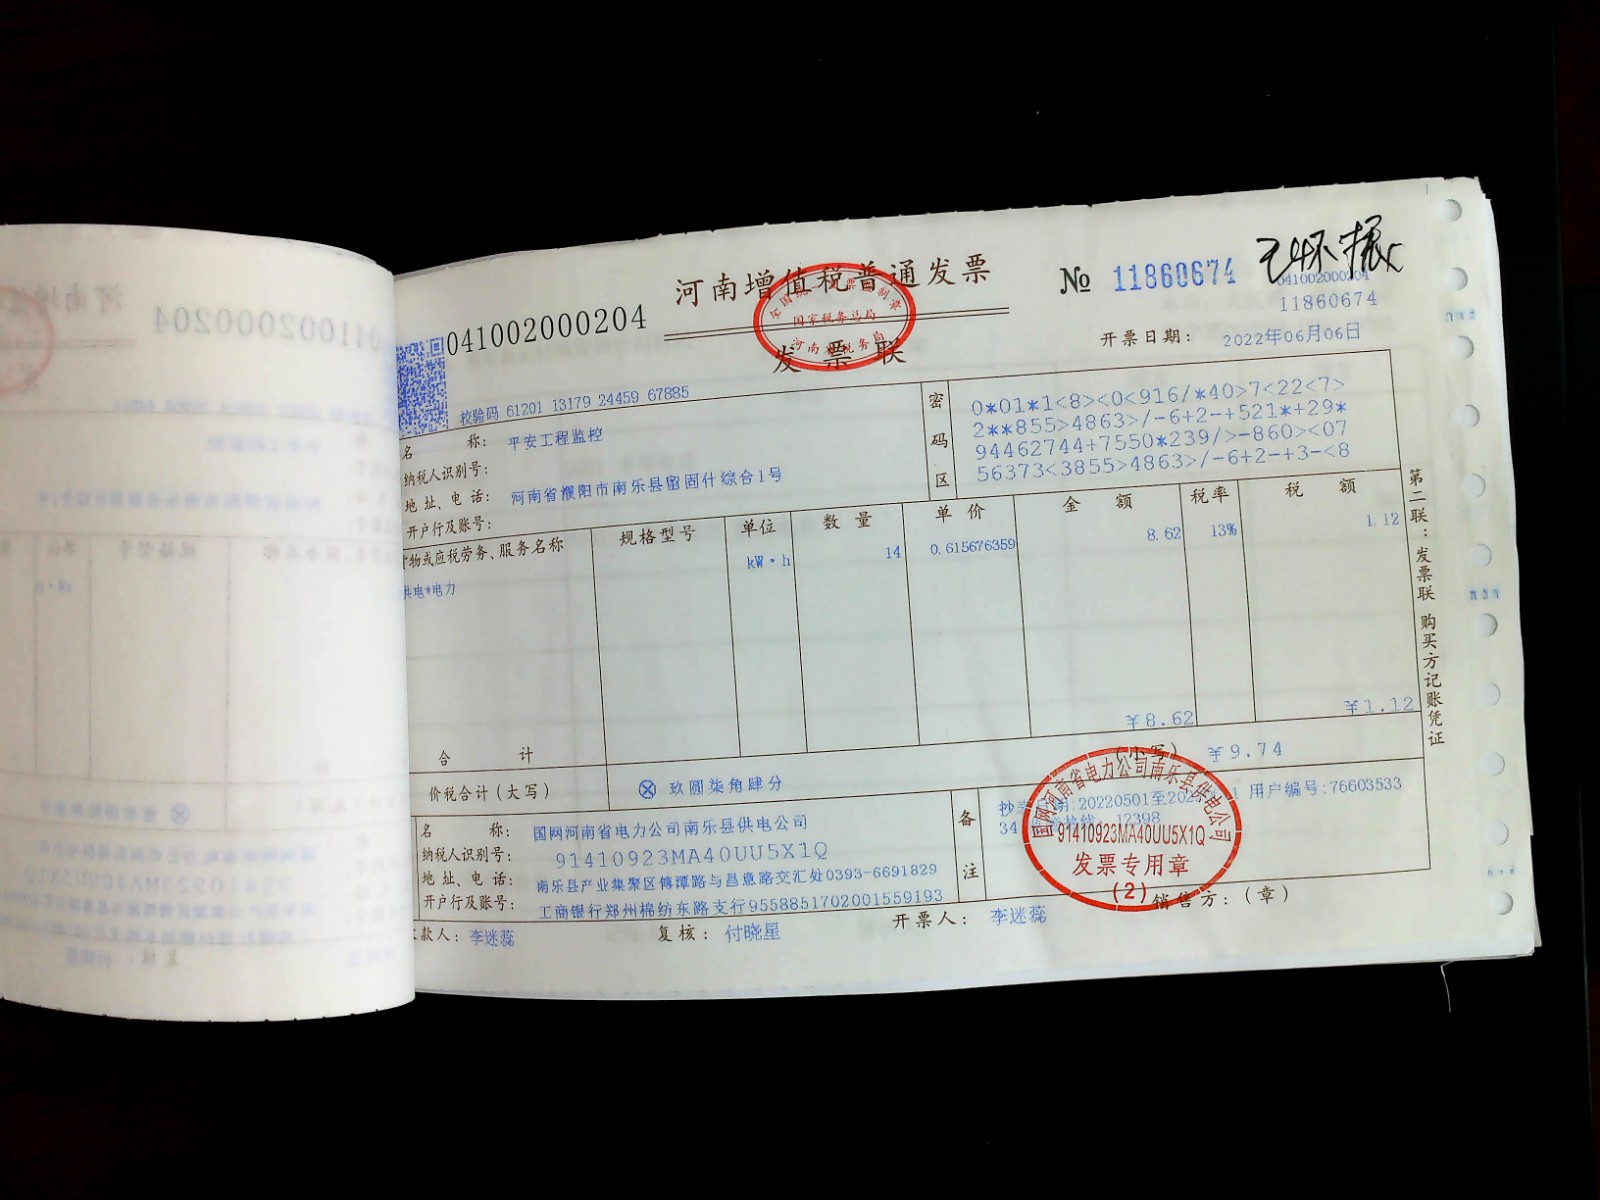 河南增值税普通发票
发票联
041002000204
№ 11860674
王怀振
041002000204
11860674
开票日期： 2022年06月06日
校验码 61201 13179 24459 67885
名 称： 平安工程监控
纳税人识别号：
地 址、电 话： 河南省濮阳市南乐县留固什综合1号
开户行及账号：
密码区
0*01*1<8><0<916/*40>7<22<7>
2**855>4863>/-6+2-+521*+29*
94462744+7550*239/>-860><07
56373<3855>4863>/-6+2-+3-<8
物或应税劳务、服务名称 规格型号 单位 数 量 单 价 金 额 税率 税 额
供电*电力 kW·h 14 0.615676359 8.62 13% 1.12
合 计 ￥8.62 ￥1.12
价税合计（大写） ⊗ 玖圆柒角肆分 （小写） ￥9.74
名 称： 国网河南省电力公司南乐县供电公司
纳税人识别号： 91410923MA40UU5X1Q
地 址、电 话： 南乐县产业集聚区傅潭路与昌意路交汇处0393-6691829
开户行及账号： 工商银行郑州棉纺东路支行9558851702001559193
备注
用户编号:76603533
34
12398
款人： 李迷蕊 复核： 付晓星 开票人： 李迷蕊 销售方：（章）
国家税务总局
国网河南省电力公司南乐县供电公司
91410923MA40UU5X1Q
发票专用章
(2)
第二联：发票联 购买方记账凭证